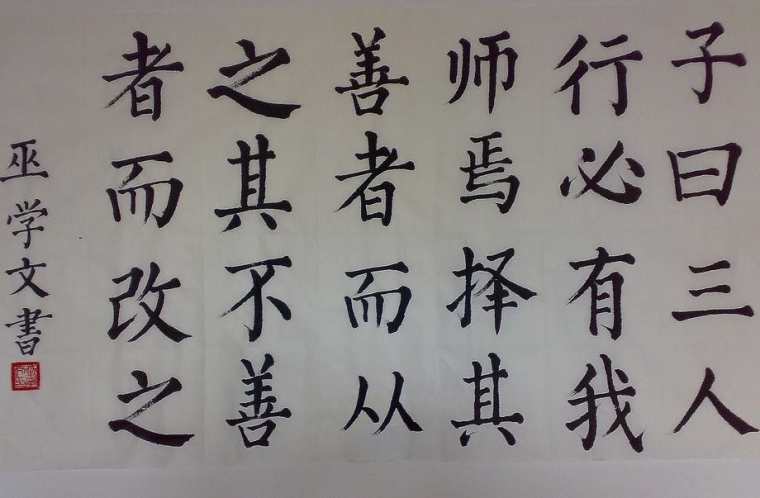 子曰三人
行必有我
师焉择其
善者而从
之其不善
者而改之
巫学文書